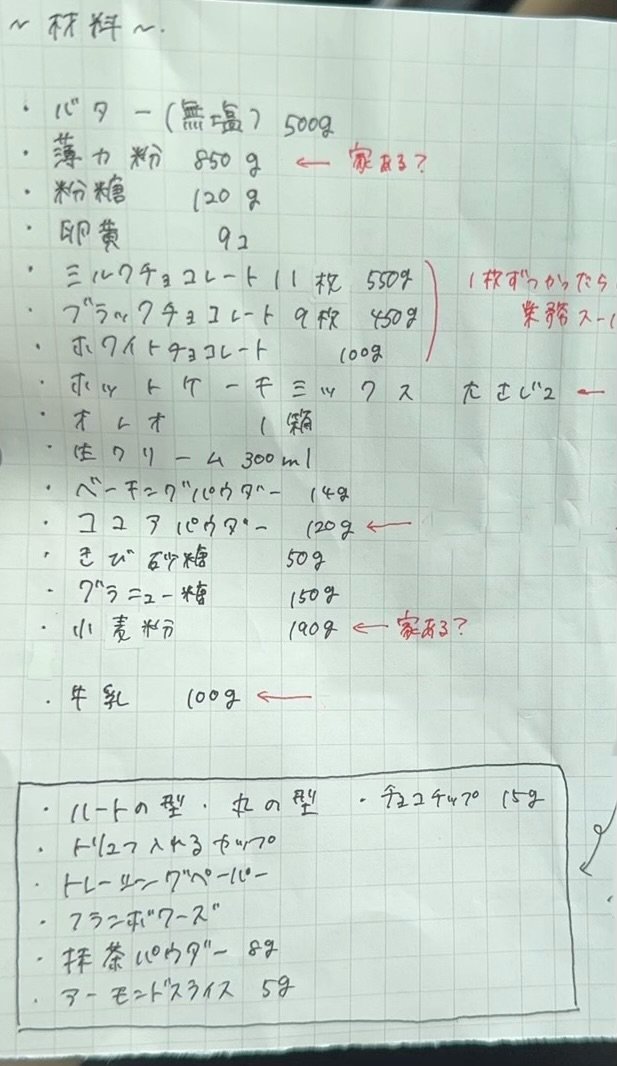 ～材料～.
・バター(無塩) 500g
・薄力粉 850g ← 家ある?
・粉糖 120g
・卵黄 9コ
・ミルクチョコレート11枚 550g
・ブラックチョコレート9枚 450g
・ホワイトチョコレート 100g
1枚ずつかったら
業務スー
・ホットケーキミックス 大さじ2 ←
・オレオ 1箱
・生クリーム 300ml
・ベーキングパウダー 14g
・ココアパウダー 120g ←
・きび砂糖 50g
・グラニュー糖 150g
・小麦粉 190g ← 家ある?
・牛乳 100g ←
・ハートの型・丸の型 ・チョコチップ 15g
・トリュフ入れるカップ
・トレーシングペーパー
・フランボワーズ
・抹茶パウダー 8g
・アーモンドスライス 5g